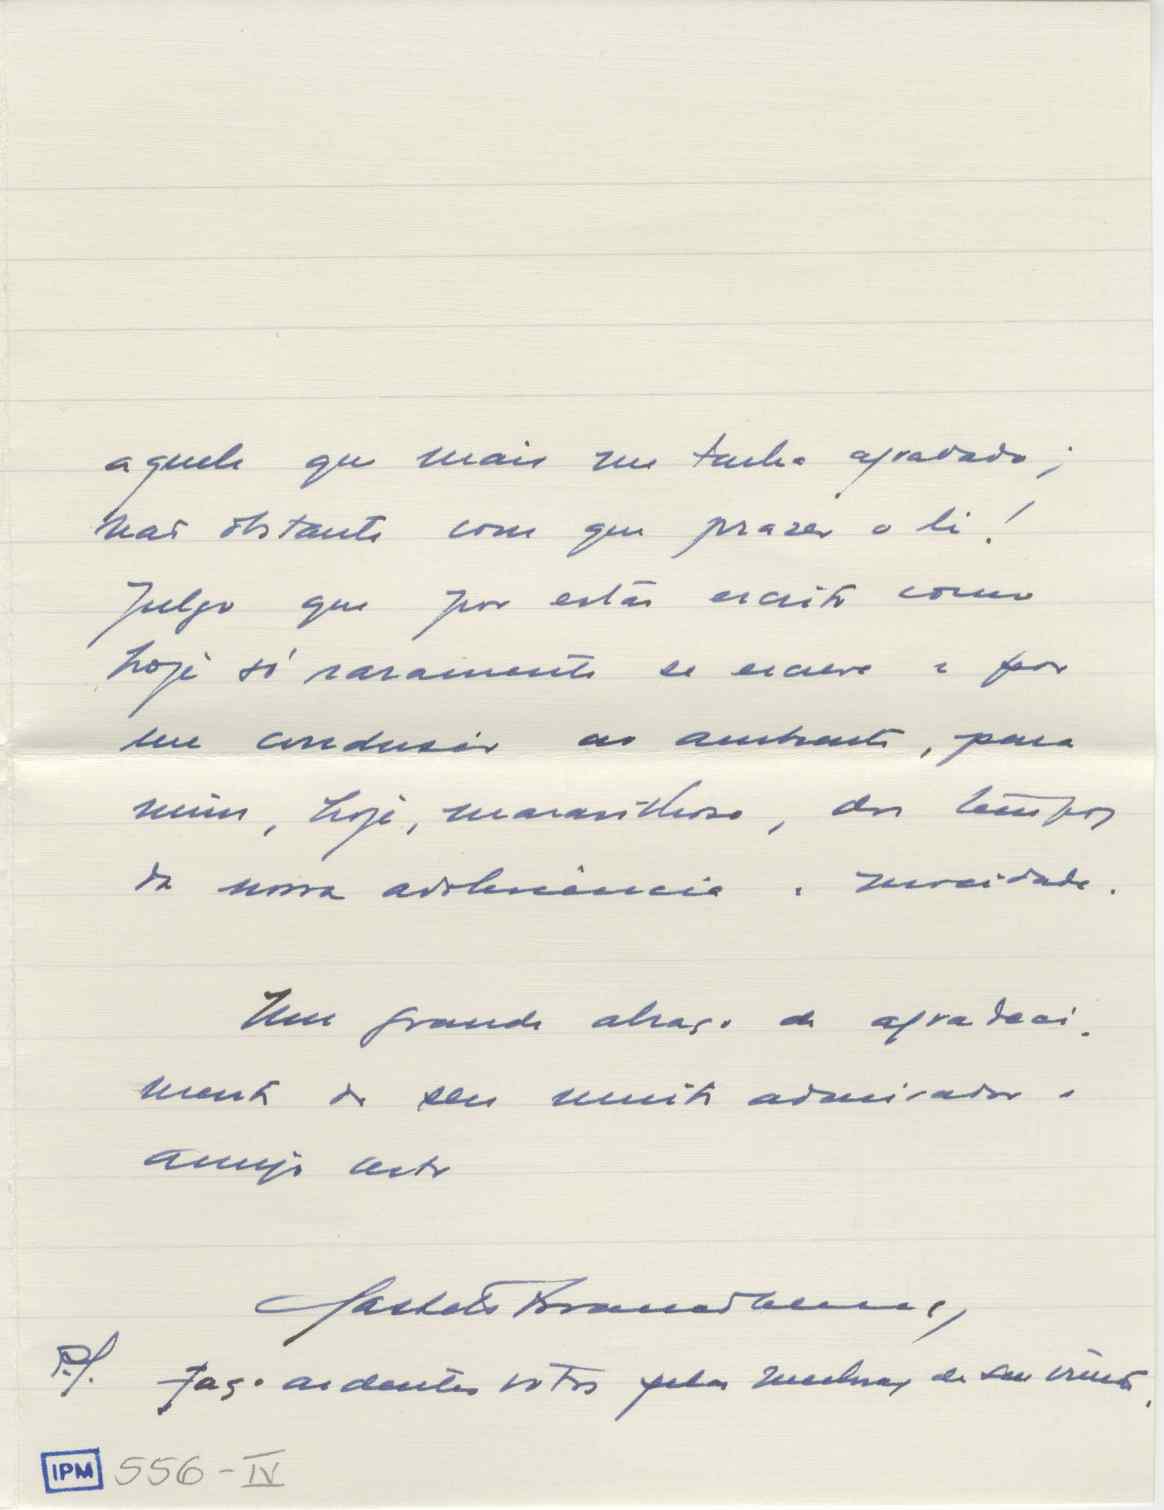 aquele que mais me tenha agradado;
não obstante com que prazer o li!
Julgo que por estar escrito como
hoje só raramente se escreve e por
me conduzir ao ambiente, para
mim, hoje, maravilhoso, dos tempos
da nossa adolescência e mocidade.
Um grande abraço de agradeci-
mento do seu muito admirador e
amigo certo
P.S. Faço ardentes votos pelas melhoras de seu irmão.
IPM 556-IV